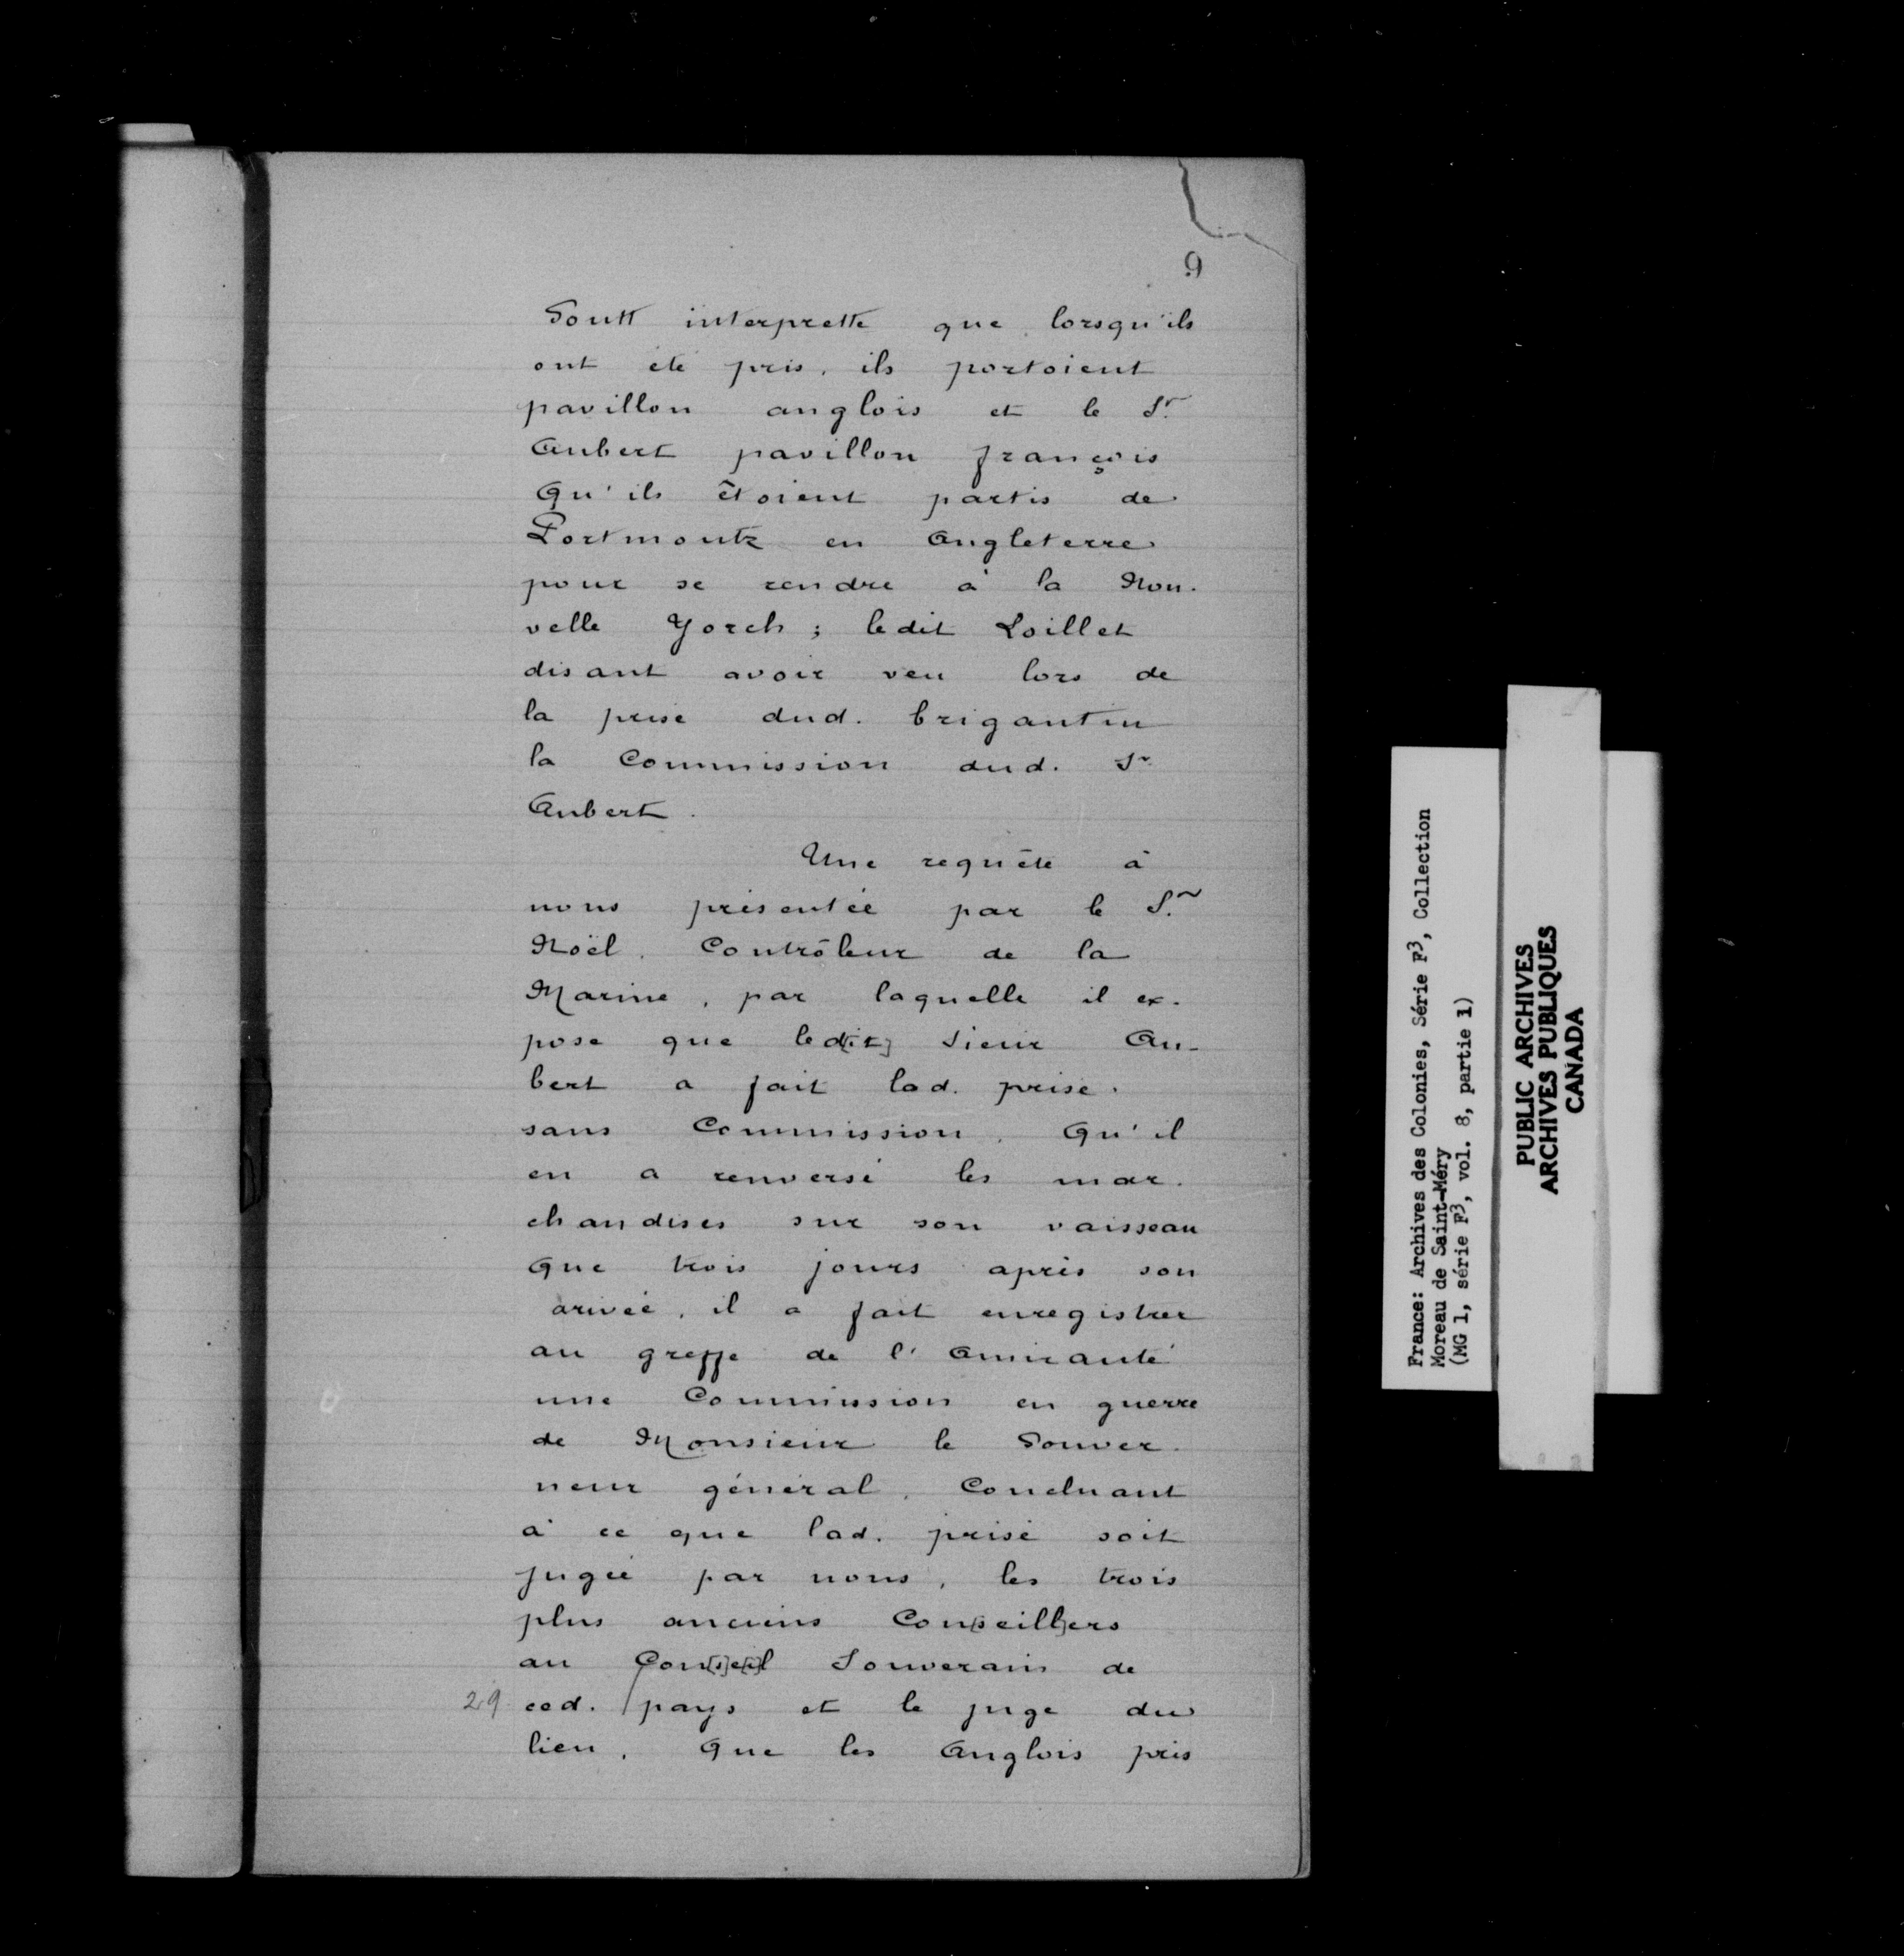 9
Soutt interprette que lorsqu'ils
ont été pris, ils portoient
pavillon anglois et le Sr.
Aubert pavillon françois
Qu'ils êtoient partis de
Portmoutz en Angleterre
pour se rendre à la Nou-
velle Yorch ; ledit Loillet
disant avoir veu lors de
la prise dud. brigantin
la Commission dud. Sr
Aubert.
Une requête à
nous présentée par le Sr.
Noël, Contrôleur de la
Marine, par laquelle il ex-
pose que led[it] Sieur Au-
bert a fait lad. prise.
sans Commission. Qu'il
en a renversé les mar-
chandises sur son vaisseau
Que trois jours après son
arivée, il a fait enregistrer
au greffe de l'Amirauté
une Commission en guerre
de Monsieur le Gouver-
neur général. Concluant
à ce que lad. prise soit
jugée par nous, les trois
plus anciens Con[seill]ers
au Con[s]e[i]l Souverain de
29 ced. / pays et le juge du
lieu. Que les Anglois pris
France: Archives des Colonies, Série F3, Collection
Moreau de Saint-Méry
(MG 1, série F3, vol. 8, partie 1)
PUBLIC ARCHIVES
ARCHIVES PUBLIQUES
CANADA